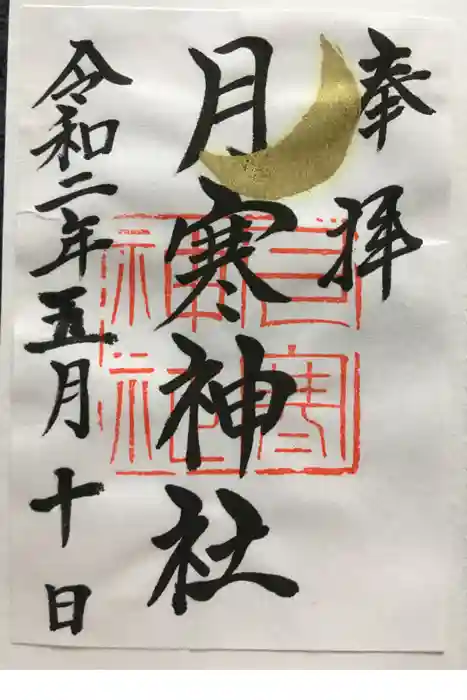 奉拝
月寒神社
令和二年五月十日
月寒神社